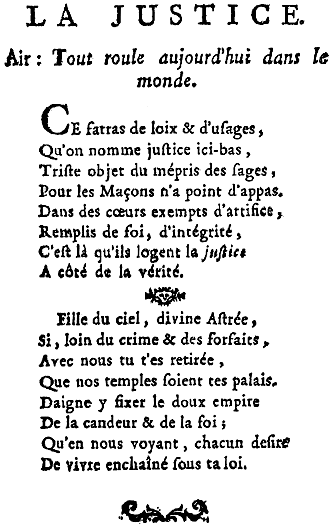 LA JUSTICE.
Air : Tout roule aujourd'hui dans le
monde.
CE fatras de loix & d'uſages,
Qu'on nomme juſtice ici-bas,
Triſte objet du mépris des ſages,
Pour les Maçons n'a point d'appas.
Dans des cœurs exempts d'artifice,
Remplis de foi, d'intégrité,
C'eſt là qu'ils logent la juſtice
A côté de la vérité.
Fille du ciel, divine Aſtrée,
Si, loin du crime & des forfaits,
Avec nous tu t'es retirée,
Que nos temples ſoient tes palais.
Daigne y fixer le doux empire
De la candeur & de la foi;
Qu'en nous voyant, chacun deſire
De vivre enchaîné ſous ta loi.